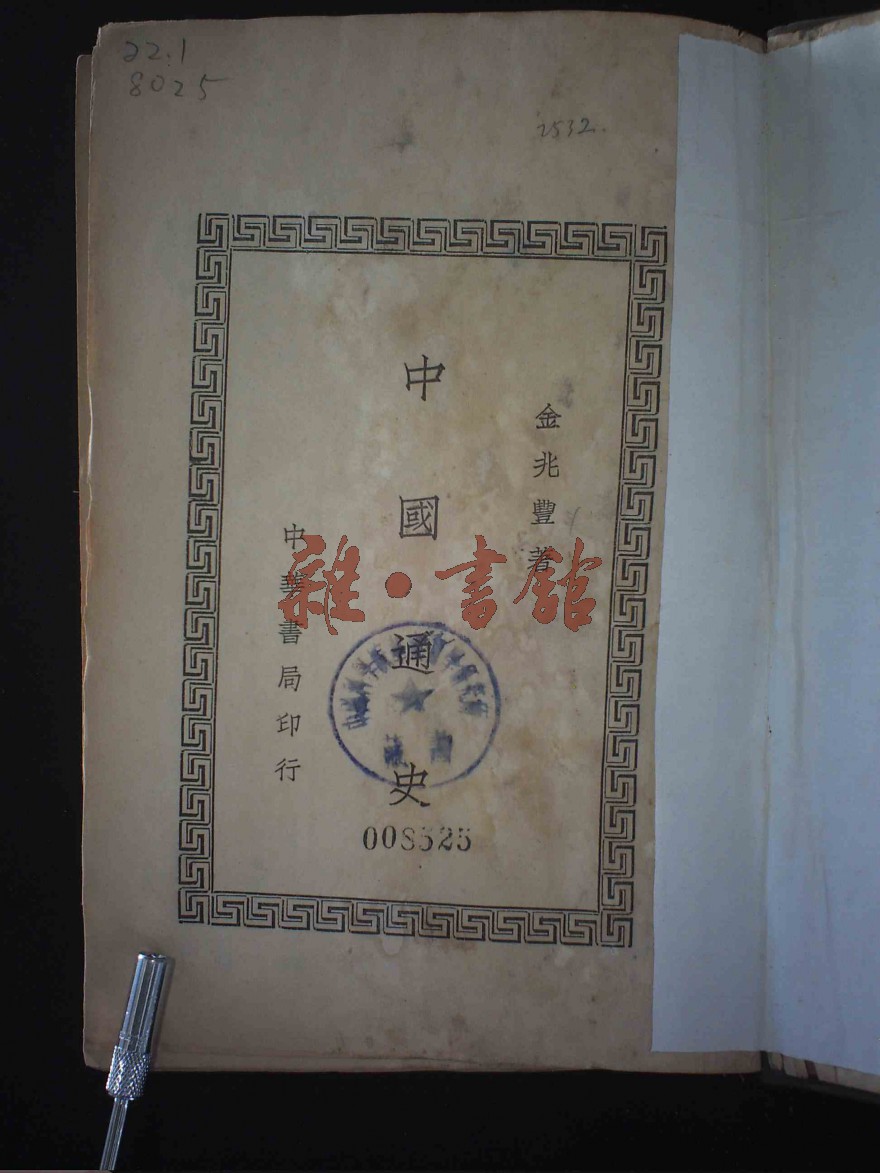 22.1
8025
2532.
金兆豐著
中國通史
中華書局印行
雜·書館
008525